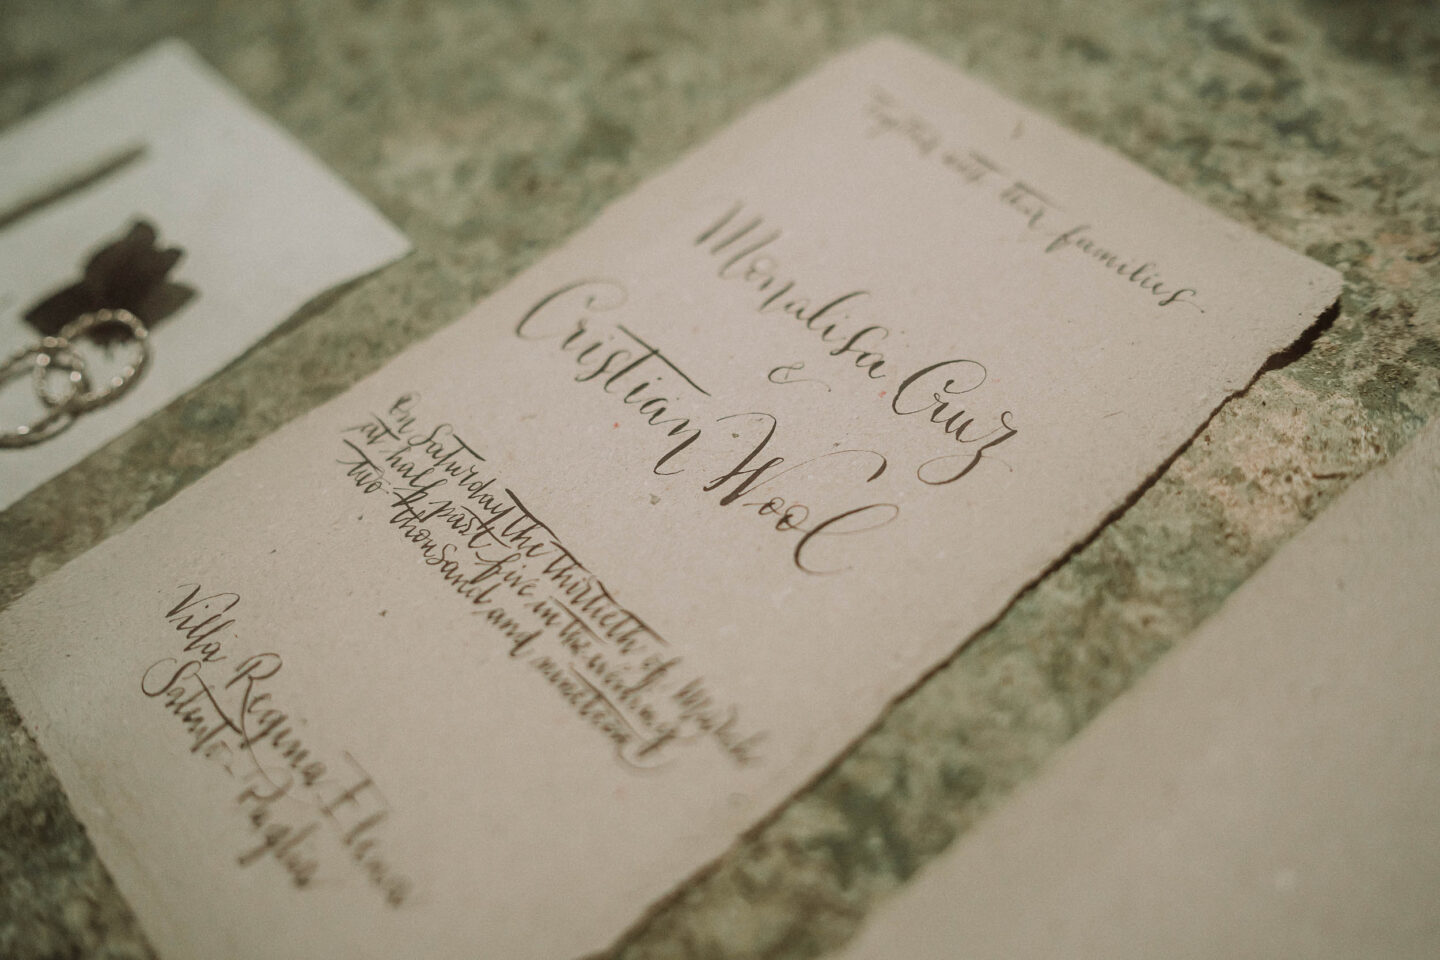 Together with their families
Monalisa Cruz
&
Cristian Wool
On Saturday the thirtieth of March
at half past five in the evening
two-thousand and nineteen
Villa Regina Elena
Salento-Puglia